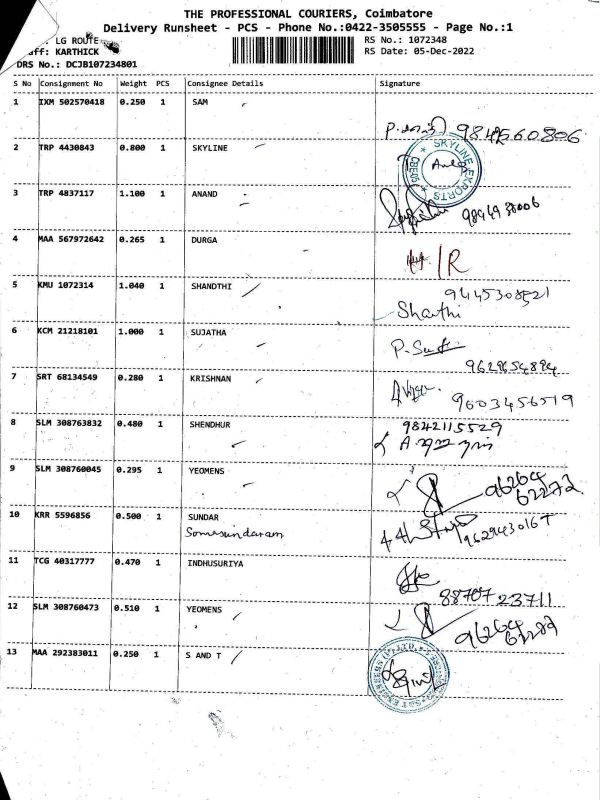 THE PROFESSIONAL COURIERS, Coimbatore
Delivery Runsheet - PCS - Phone No.:0422-3505555 - Page No.:1
: LG ROUTE
RS No.: 1072348
ff: KARTHICK
RS Date: 05-Dec-2022
DRS No.: DCJB107234801
S No Consignment No Weight PCS Consignee Details Signature
1 IXM 502570418 0.250 1 SAM
2 TRP 4430843 0.800 1 SKYLINE
SKYLINE EXPORTS
3 TRP 4837117 1.100 1 ANAND
4 MAA 567972642 0.265 1 DURGA
H/R
5 KMU 1072314 1.040 1 SHANDTHI
9445308521
Shanthi
6 KCM 21218101 1.000 1 SUJATHA
7 SRT 68134549 0.280 1 KRISHNAN
9603456519
8 SLM 308763832 0.480 1 SHENDHUR 9842115529
9 SLM 308760045 0.295 1 YEOMENS
96264
62272
10 KRR 5596856 0.500 1 SUNDAR
Somasundaram
11 TCG 40317777 0.470 1 INDHUSURIYA
88707 23711
12 SLM 308760473 0.510 1 YEOMENS
96264
62272
13 MAA 292383011 0.250 1 S AND T